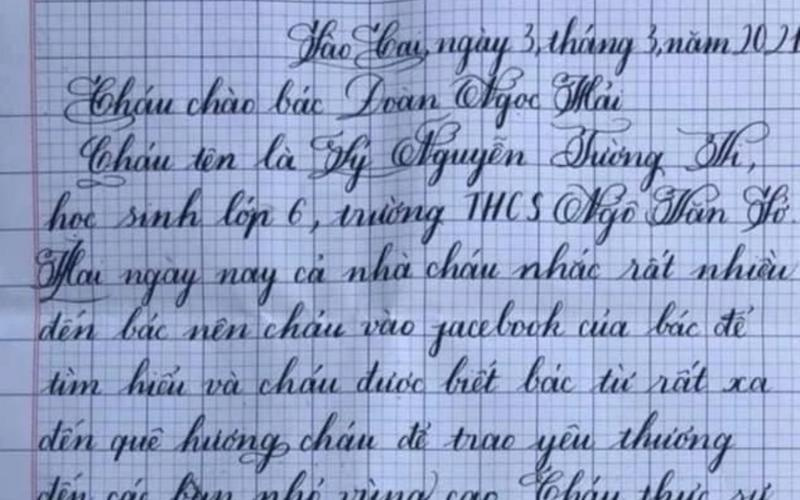 Lào Cai, ngày 3, tháng 3, năm 2021
Cháu chào bác Đoàn Ngọc Hải
Cháu tên là Lý Nguyễn Tường Vi,
học sinh lớp 6, trường THCS Ngô Văn Sở.
Hai ngày nay cả nhà cháu nhắc rất nhiều
đến bác nên cháu vào facebook của bác để
tìm hiểu và cháu được biết bác từ rất xa
đến quê hương cháu để trao yêu thương
đến các bạn nhỏ vùng cao. Cháu thực sự